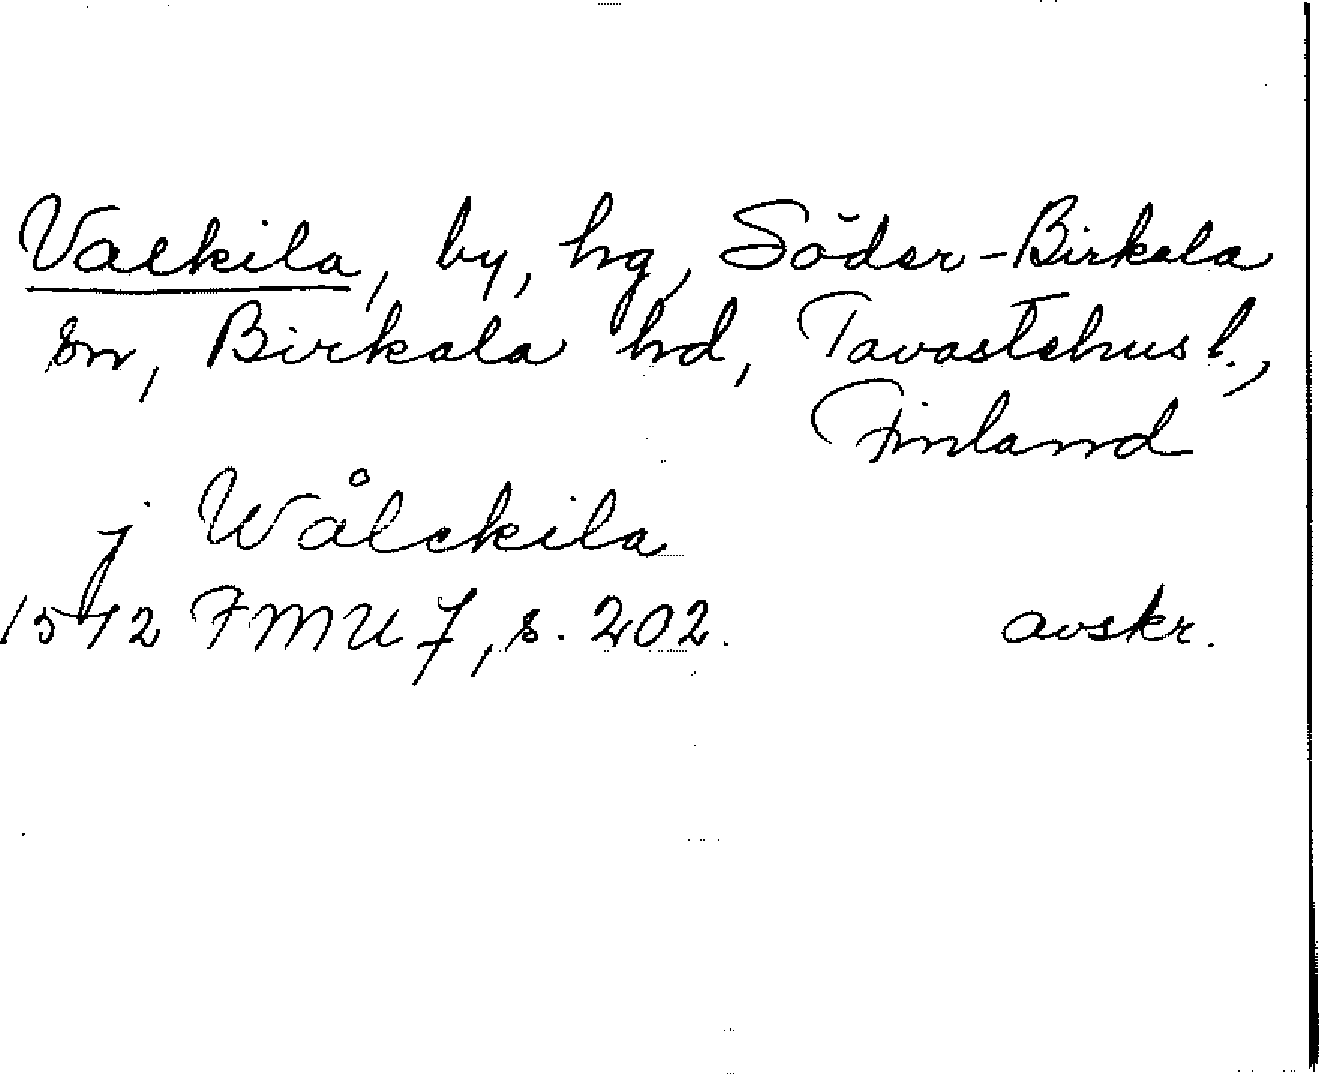 Valkila, by, hg, Söder-Birkala
sn, Birkala hd, Tavastehus l.,
Finland
j Wålckila
1542 FMU 7, s. 202. avskr.